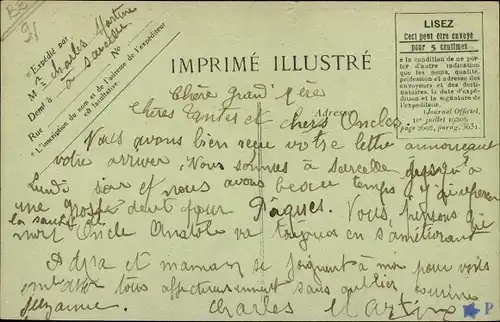 LISEZ
Ceci peut être envoyé
pour 5 centimes
à la condition de ne porter d'autre indication
que les noms, qualité,
profession et adresse des
envoyeurs et des destinataires,
la date d'expédition et la signature de
l'expéditeur.
(Journal Officiel,
1er juillet 1920,
page 2602, parag. 303).
« Expédié par
M Charles Martin
Demt à Sarcelle
Rue N°
« L'inscription du nom et de l'adresse de l'expéditeur
est facultative.
IMPRIMÉ ILLUSTRÉ
Adresse
Chère Grand'père
Chères Tantes et chers Oncles
Nous avons bien reçu votre lettre annoncant
votre arriver. Nous sommes à Sarcelle jusqu'à
Lundi soir et nous avons beau temps
une grosse dent pour Pâques. Vous
la santé
mon Oncle Anatole va toujours en s'améliorant
et maman se joignent à moi pour vous
tous affectueusement sans oublier cousine
Suzanne.
Charles Martin
P